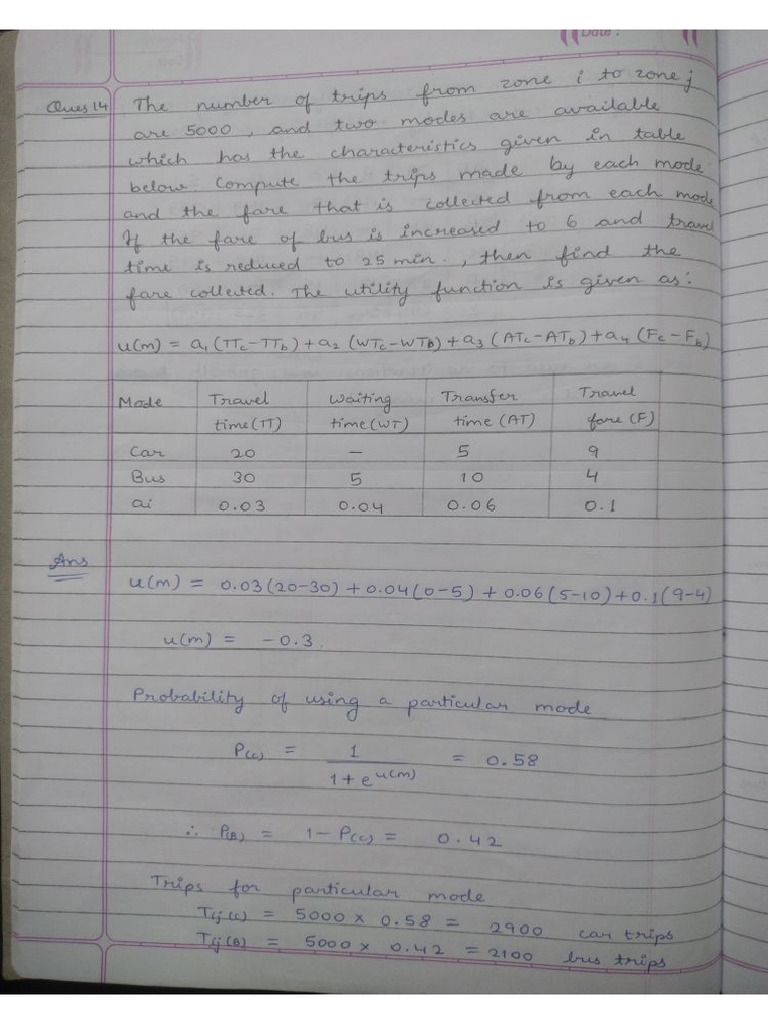 Date :
Ques 14 The number of trips from zone i to zone j
are 5000, and two modes are available
which has the characteristics given in table
below compute the trips made by each mode
and the fare that is collected from each mode
If the fare of bus is increased to 6 and travel
time is reduced to 25 min., then find the
fare collected. The utility function is given as:
u(m) = a₁(TTc-TTb)+a₂(WTc-WTb)+a₃(ATc-ATb)+a₄(Fc-Fb)
Mode Travel time(TT) Waiting time(WT) Transfer time(AT) Travel fare(F)
Car 20 — 5 9
Bus 30 5 10 4
ai 0.03 0.04 0.06 0.1
Ans
u(m) = 0.03(20-30)+0.04(0-5)+0.06(5-10)+0.1(9-4)
u(m) = -0.3
Probability of using a particular mode
P(c) = 1 / 1+e^u(m) = 0.58
∴ P(B) = 1-P(C) = 0.42
Trips for particular mode
Tij(C) = 5000 x 0.58 = 2900 car trips
Tij(B) = 5000 x 0.42 = 2100 bus trips